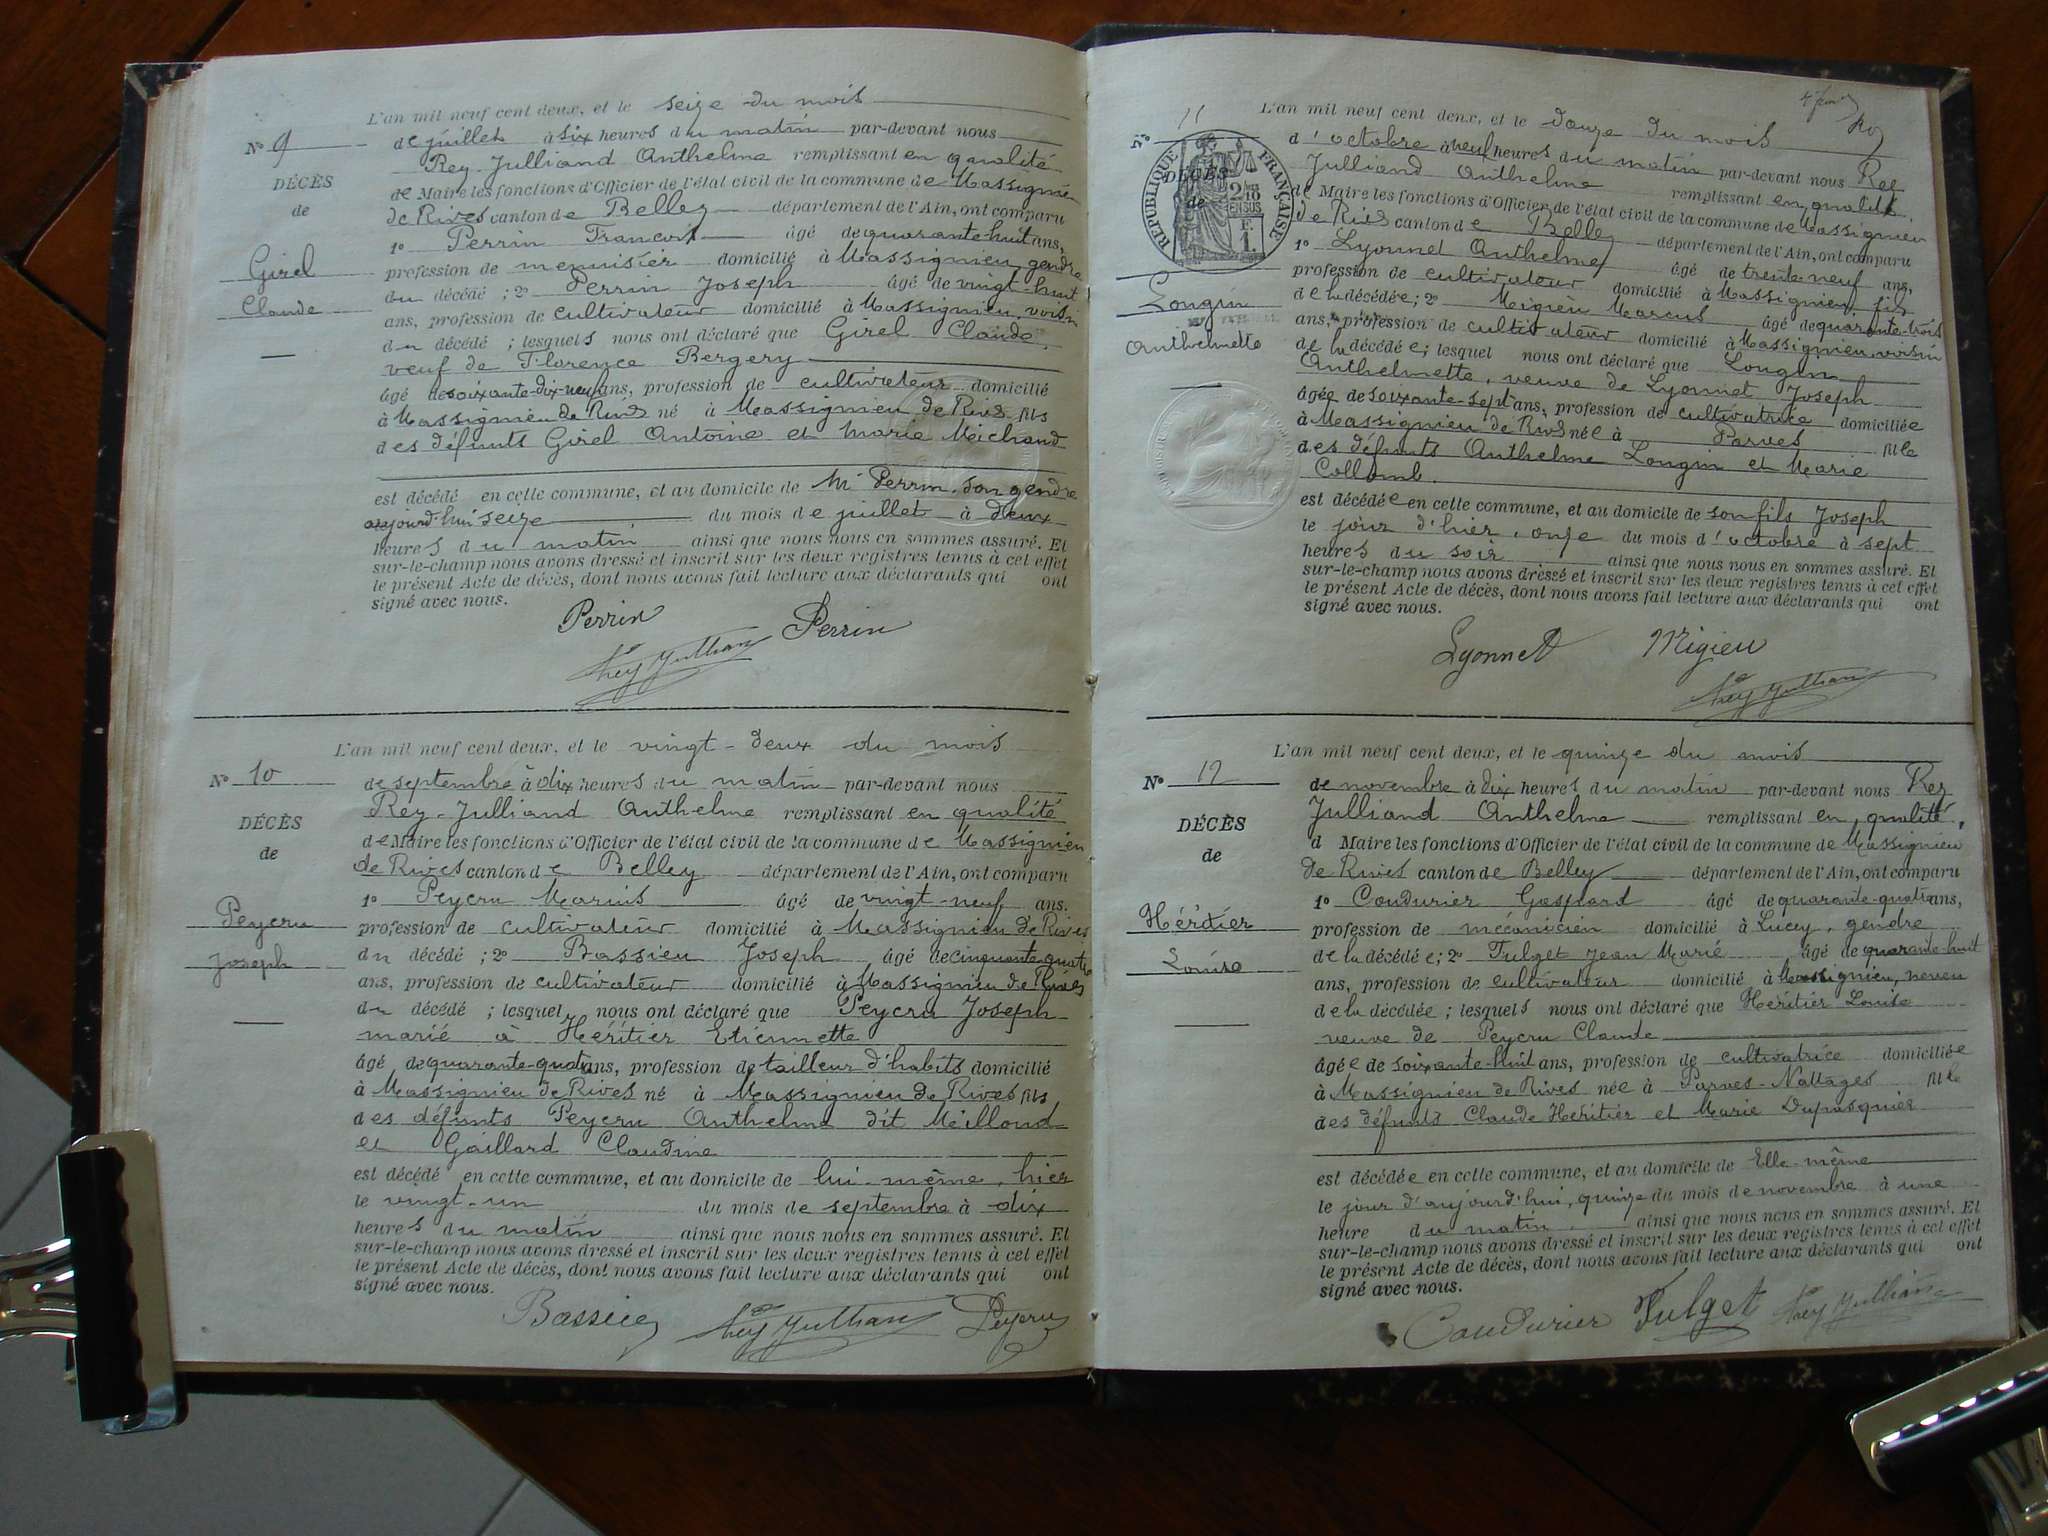 L'an mil neuf cent deux, et le seize du mois
N° 9
de juillet à six heures du matin par-devant nous
Rey-Julliand Anthelme remplissant en qualité
DÉCÈS
de Maire les fonctions d'Officier de l'état civil de la commune de Massignieu
de
de Rives canton de Belley département de l'Ain, ont comparu
1° Perrin François âgé de quarante-huit ans,
Girel
profession de menuisier domicilié à Massignieu, gendre
du décédé ; 2° Perrin Joseph âgé de vingt-huit
Claude
ans, profession de cultivateur domicilié à Massignieu, voisin
du décédé ; lesquels nous ont déclaré que Girel Claude,
veuf de Florence Bergery
âgé de soixante-dix-neuf ans, profession de cultivateur domicilié
à Massignieu de Rives né à Massignieu de Rives fils
des défunts Girel Antoine et Marie Michaud
est décédé en cette commune, et au domicile de Mr Perrin, son gendre
aujourd'hui seize du mois de juillet à deux
heures du matin ainsi que nous nous en sommes assuré. Et
sur-le-champ nous avons dressé et inscrit sur les deux registres tenus à cet effet
le présent Acte de décès, dont nous avons fait lecture aux déclarants qui ont
signé avec nous.
Perrin
Rey Julliand Perrin
L'an mil neuf cent deux, et le vingt-deux du mois
N° 10
de septembre à dix heures du matin par-devant nous
Rey-Julliand Anthelme remplissant en qualité
DÉCÈS
de Maire les fonctions d'Officier de l'état civil de la commune de Massignieu
de
de Rives canton de Belley département de l'Ain, ont comparu
1° Peycru Marius âgé de vingt-neuf ans.
Peycru
profession de cultivateur domicilié à Massignieu de Rives
du décédé ; 2° Bassieu Joseph âgé de cinquante-quatre
Joseph
ans, profession de cultivateur domicilié à Massignieu de Rives
du décédé ; lesquels nous ont déclaré que Peycru Joseph
marié à Héritier Etiennette
âgé de quarante-quatre ans, profession de tailleur d'habits domicilié
à Massignieu de Rives né à Massignieu de Rives fils
des défunts Peycru Anthelme dit Meilloud
et Gaillard Claudine
est décédé en cette commune, et au domicile de lui-même, hier
le vingt-un du mois de septembre à dix
heures du matin ainsi que nous nous en sommes assuré. Et
sur-le-champ nous avons dressé et inscrit sur les deux registres tenus à cet effet
le présent Acte de décès, dont nous avons fait lecture aux déclarants qui ont
signé avec nous.
Bassieu Rey Julliand Peycru
L'an mil neuf cent deux, et le douze du mois
N° 11
d'octobre à neuf heures du matin par-devant nous Rey
RÉPUBLIQUE FRANÇAISE
2/10 EN SUS
F. 1.
Julliand Anthelme remplissant en qualité
DÉCÈS
de Maire les fonctions d'Officier de l'état civil de la commune de Massignieu
de
de Rives canton de Belley département de l'Ain, ont comparu
1° Lyonnet Anthelme âgé de trente-neuf ans,
profession de cultivateur domicilié à Massignieu, fils
Longin
de la décédée ; 2° Migieu Marcus âgé de quarante-trois
ans, profession de cultivateur domicilié à Massignieu, voisin
Anthelmette
de la décédée ; lesquel nous ont déclaré que Longin
Anthelmette, veuve de Lyonnet Joseph
âgée de soixante-sept ans, profession de cultivatrice domiciliée
à Massignieu de Rives née à Parves fille
des défunts Anthelme Longin et Marie
Collomb.
est décédée en cette commune, et au domicile de son fils Joseph
le jour d'hier, onze du mois d'octobre à sept
heures du soir ainsi que nous nous en sommes assuré. Et
sur-le-champ nous avons dressé et inscrit sur les deux registres tenus à cet effet
le présent Acte de décès, dont nous avons fait lecture aux déclarants qui ont
signé avec nous.
Lyonnet Migieu
Rey Julliand
L'an mil neuf cent deux, et le quinze du mois
N° 12
de novembre à dix heures du matin par-devant nous Rey
Julliand Anthelme remplissant en qualité,
DÉCÈS
d Maire les fonctions d'Officier de l'état civil de la commune de Massignieu
de
de Rives canton de Belley département de l'Ain, ont comparu
1° Coudurier Gaspard âgé de quarante-quatre ans,
Héritier
profession de mécanicien domicilié à Lucey, gendre
de la décédée ; 2° Fulget Jean Marie âgé de quarante-huit
Louise
ans, profession de cultivateur domicilié à Massignieu, neveu
de la décédée ; lesquels nous ont déclaré que Héritier Louise
veuve de Peycru Claude
âgée de soixante-huit ans, profession de cultivatrice domiciliée
à Massignieu de Rives née à Parves-Nattages fille
des défunts Claude Héritier et Marie Dupasquier
est décédée en cette commune, et au domicile de Elle-même
le jour d'aujourd'hui, quinze du mois de novembre à une
heure du matin, ainsi que nous nous en sommes assuré. Et
sur-le-champ nous avons dressé et inscrit sur les deux registres tenus à cet effet
le présent Acte de décès, dont nous avons fait lecture aux déclarants qui ont
signé avec nous.
Coudurier Fulget Rey Julliand